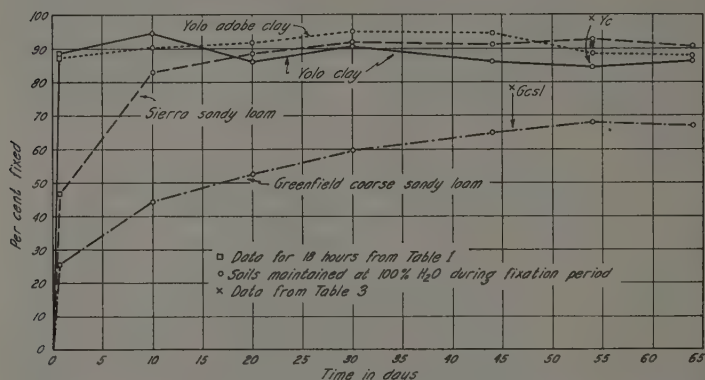 100
90
80
70
60
50
40
30
20
10
0
Per cent fixed
Yolo adobe clay
Yolo clay
× Yc
Sierra sandy loam
× Gcsl
Greenfield coarse sandy loam
□ Data for 18 hours from Table 1
○ Soils maintained at 100% H₂O during fixation period
× Data from Table 3
0 5 10 15 20 25 30 35 40 45 50 55 60 65
Time in days